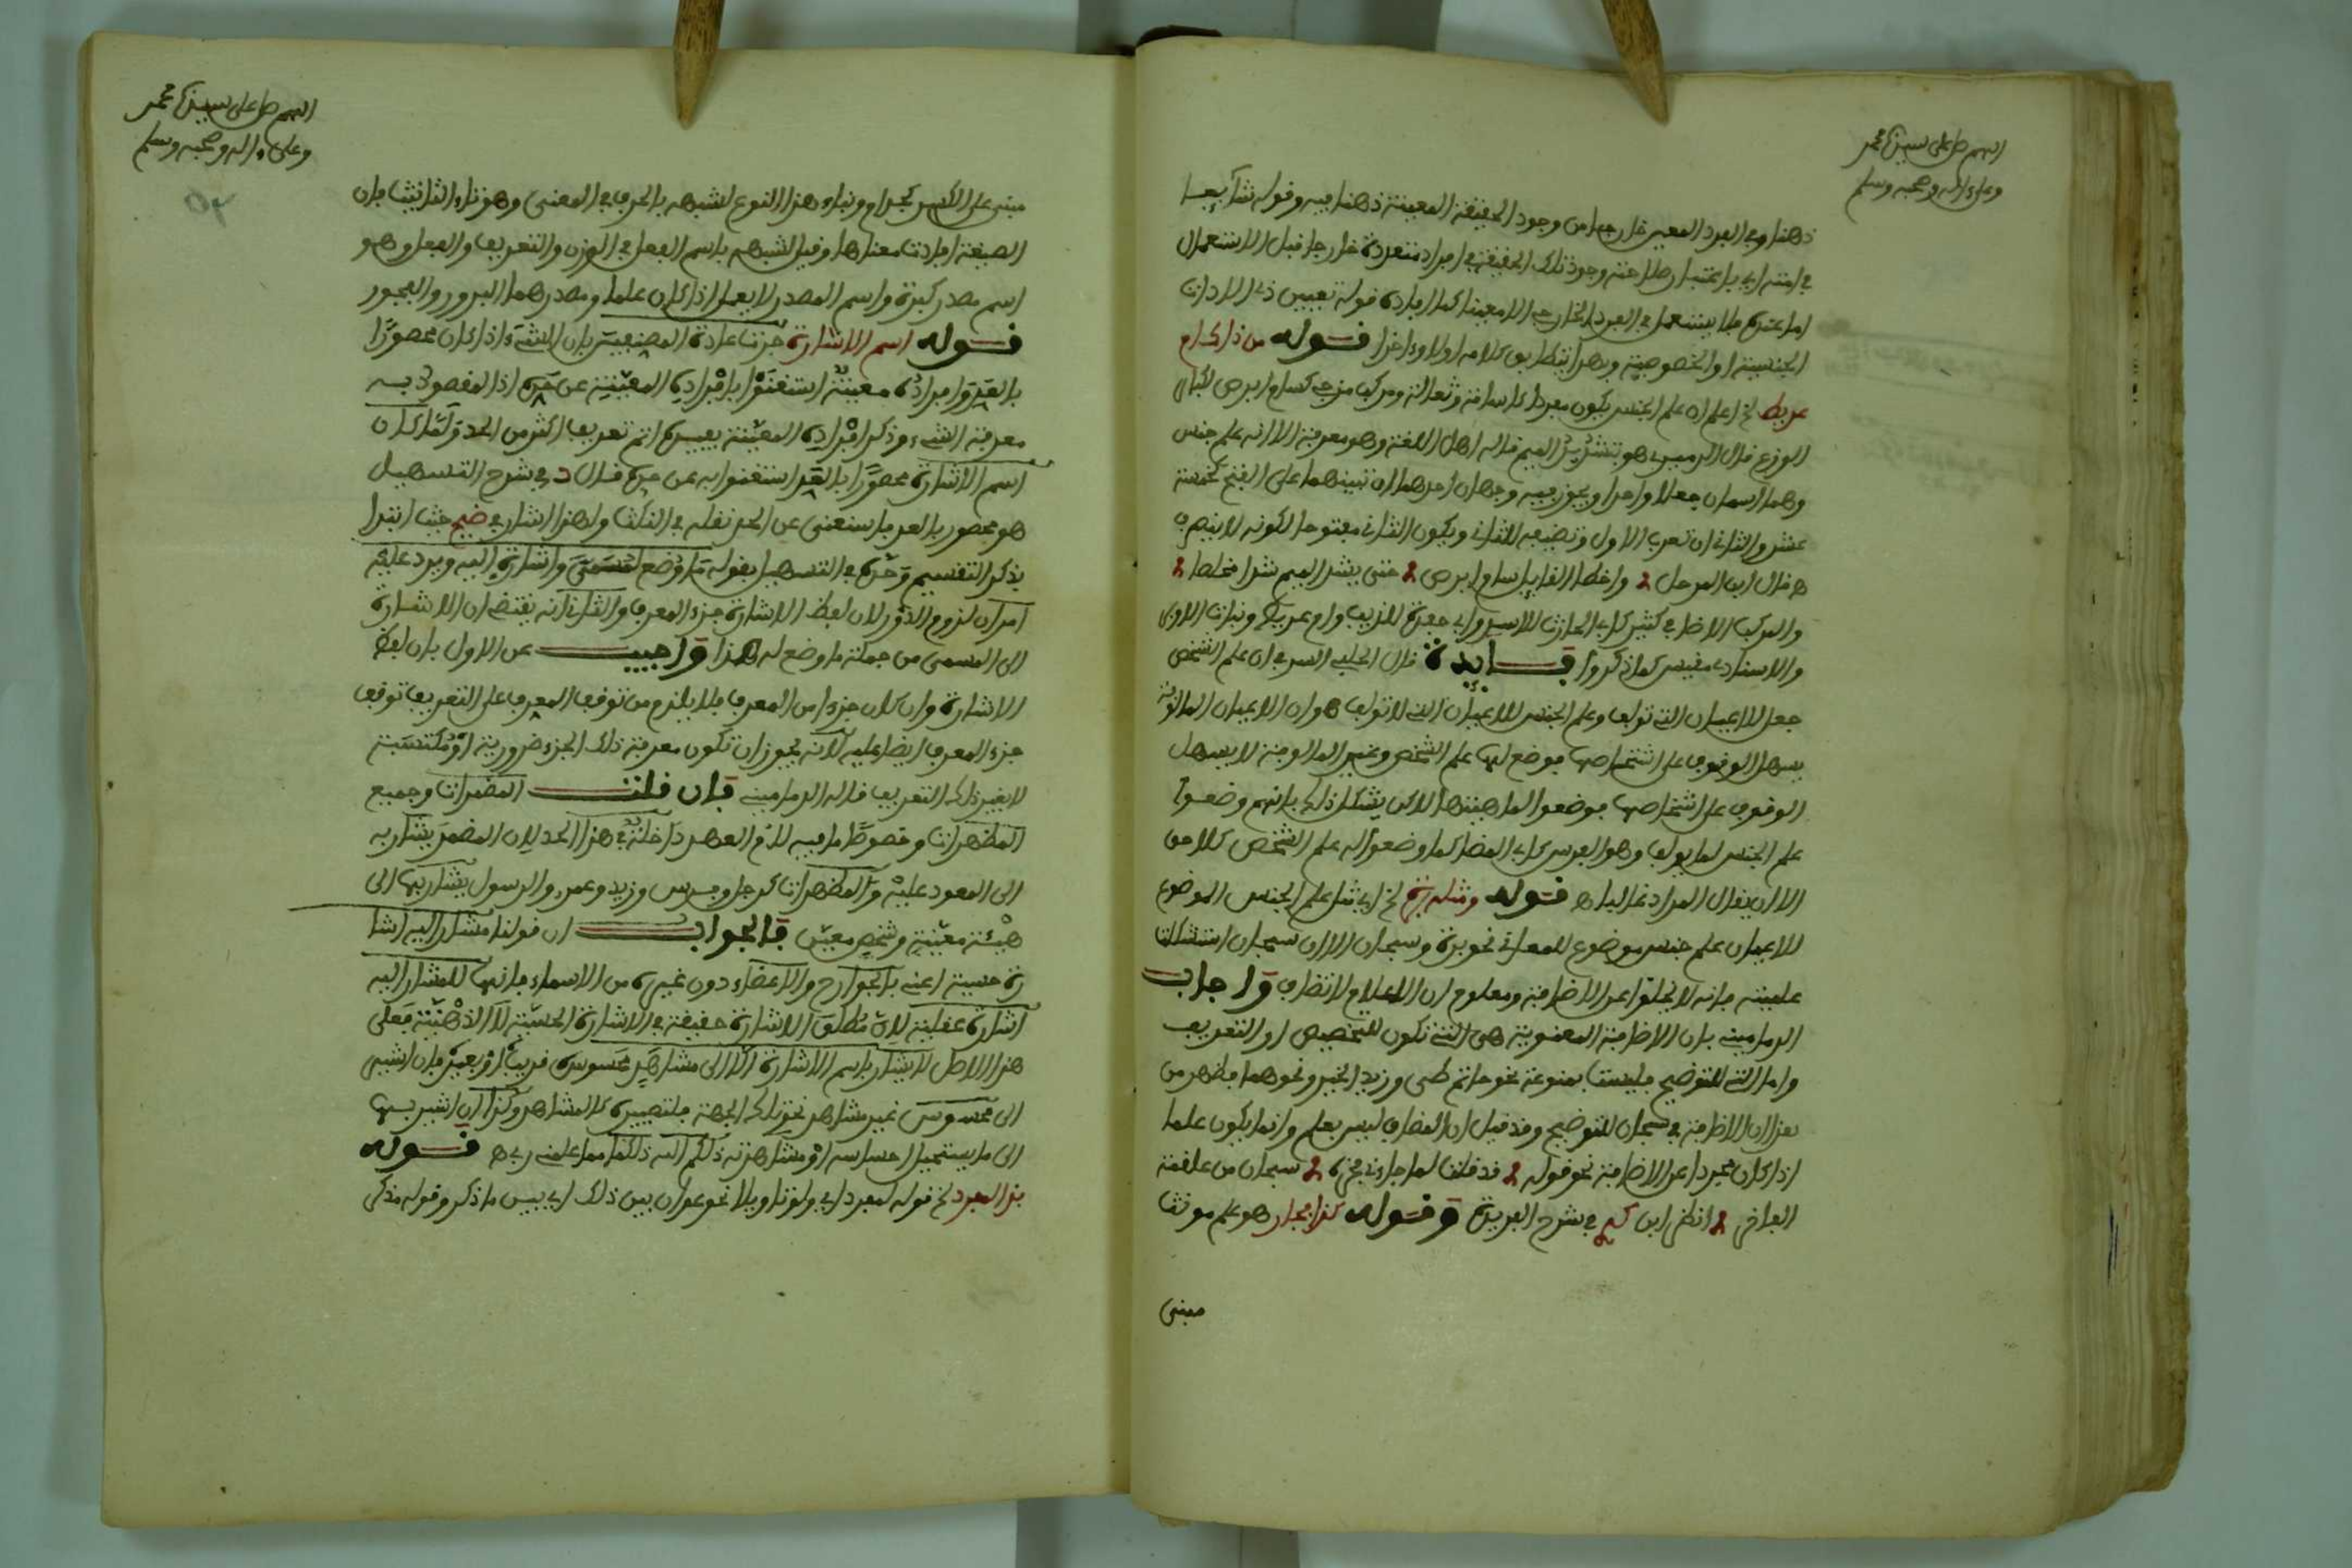 اللهم صل على سيدنا محمد
وعلى ءاله وصحبه وسلم
ذهنا وفي الفرد المعين خارجا من وجود الحقيقة المعينة ذهنا فيه وقوله شائعا
في امته اي باعتبار صلاحية وجود تلك الحقيقة في افراد متعددة خارجا قبل الاستعمال
اما عنده فلا يستعمل في الفرد الخارجي الا معينا كما افاده قوله تعيين ذي الاداة
الجنسية او الحضورية وبهذا يتطابق كلامه اولا وءاخرا قوله من ذاك ام
عريط الخ اعلم ان علم الجنس يكون مفردا كاسامة وثعالة ومركبا مزجيا كسام ابرص لكبار
الوزغ قال الدميري هو بتشديد الميم قاله اهل اللغة وهو معرفة الا انه علم جنس
وهما اسمان جعلا واحدا ويجوز فيه وجهان احدهما ان تبنيهما على الفتح كخمسة
عشر والثاني ان تعرب الاول وتضيفه للثاني ويكون الثاني مفتوحا لكونه لا ينصرف
ه قال ابن المرحل واخطا الفا بسام ابرص حتى يشد الميم شدا مخلصا
والمركب الاضافي كثير كابي الحارث للاسد وابي جعدة للذيب وام عريط وبنات الاوبر
والاسنادي مقيس كما ذكروا فايدة قال الحلبي السر في ان علم الشخص
جعل للاعيان التي تولف وعلم الجنس للاعيان التي لا تولف هو ان الاعيان المالوفة
يسهل الوقوف على اشخاصها فوضع لها علم الشخص وغير المالوفة لا يسهل
الوقوف على اشخاصها فوضعوا لماهيتها لاكن يشكل ذلك بانهم وضعوا
علم الجنس لما يولف وهو الفرس كابي المضا كما وضعوا له علم الشخص كلاحق
الا ان يقال المراد غالبا ه قوله ومثله برة الخ اي مثل علم الجنس الموضوع
للاعيان علم جنس موضوع للمعاني نحو برة وسبحان الا ان سبحان استشكلت
علميته فانه لا يخلو عن الاضافة ومعلوم ان الاعلام لا تضاف واجاب
الدماميني بان الاضافة المعنوية هي التي تكون للتخصيص او التعريف
واما التي للتوضيح فليست بممنوعة نحو حاتم طي وزيد الخير ونحوهما فظهر من
هذا ان الاضافة في سبحان للتوضيح وقد قيل ان المضاف ليس بعلم وانما يكون علما
اذا كان مجردا عن الاضافة نحو قوله قد قلت لما جاءني فخره سبحان من علقمة
الفاخر انظر ابن في شرح الفريدة وقوله كذا فجار هو علم مونث
مبني
اللهم صل على سيدنا محمد
وعلى ءاله وصحبه وسلم
مبني على الكسر كحذام وبناء هذا النوع لشبهه بالحرف في المعنى وهو تاء التانيث فان
الصيغة افادت معناها وقيل لشبهه باسم الفعل في الوزن والتعريف والعدل وهو
اسم مصدر كبرة واسم المصدر لا يعمل اذا كان علما ومصدرهما البرور والفجور
قوله اسم الاشارة جرت عادة المصنفين بان الشيء اذا كان محصورا
بالعد وافراده معينة استغنوا بافراده المعينة عن حده اذ المقصود به
معرفة الشيء وذكر افراده المعينة يفيده اتم تعريف اكثر من الحد ولما كان
اسم الاشارة محصورا بالعد استغنوا به عن حده قال د في شرح التسهيل
هو محصور بالعد فاستغنى عن الحد نقله في النكت ولهذا اشار في ضيح حيث ابتدا
بذكر التقسيم وحده في التسهيل بقوله ما وضع لمسمى واشارة اليه ويرد عليه
امران لزوم الدور لان لفظ الاشارة جزء المعرف والثاني انه يقتضي ان الاشارة
الى المسمى من جملة ما وضع له هذا واجيب عن الاول بان لفظ
الاشارة وان كان جزءا من المعرف فلا يلزم من توقف المعرف على التعريف توقف
جزء المعرف ايضا عليه لانه يجوز ان تكون معرفة ذلك الجزء ضرورية او مكتسبة
لا بغير ذلك التعريف قاله الدماميني فان قلت المضمرات وجميع
المظهرات وخصوصا ما فيه لام العهد داخلة في هذا الحد لان المضمر يشار به
الى المعود عليه والمظهرات كرجل وفرس وزيد وعمرو والرسول يشار بها الى
هيئة معينة وشخص معين فالجواب ان قولنا مشار اليه اشا
رة حسية اعني بالجوارح والاعضاء دون غيره من الاسماء فانها للمشار اليه
اشارة عقلية لان مطلق الاشارة حقيقة في الاشارة الحسية لا الذهنية فعلى
هذا الاصل لا يشار باسم الاشارة الا الى مشاهد محسوس قريب او بعيد فان اشير
الى محسوس غير مشاهد نحو تلك الجنة فلتصييره كالمشاهد وكذا ان اشير بها
الى ما يستحيل احساسه او مشاهدته ذلكم الله ذلكما مما علمني ربي ه قوله
بذا لمفرد الخ قوله لمفرد اي ولو تاويلا نحو عوان بين ذلك اي بين ما ذكر وقوله مذكر